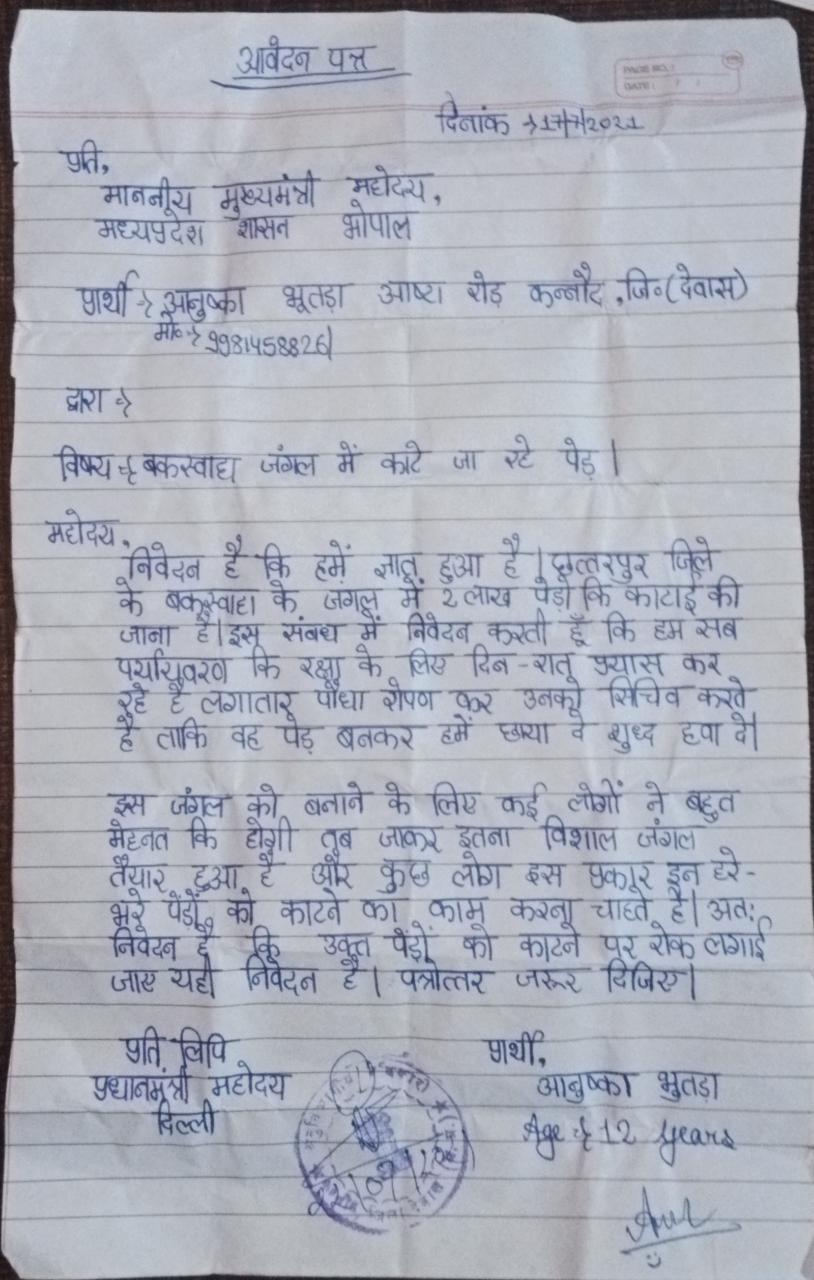 आवेदन पत्र
PAGE NO.:
DATE: / /
दिनांक → 17/7/2021
प्रति,
माननीय मुख्यमंत्री महोदय,
मध्यप्रदेश शासन भोपाल
प्रार्थी → आनुष्का भूतड़ा आष्टा रोड़ कन्नौद, जि॰(देवास)
मो॰→ 9981458826
द्वारा →
विषय → बकस्वाहा जंगल में काटे जा रहे पेड़।
महोदय,
निवेदन है कि हमें ज्ञात हुआ है। छत्तरपुर जिले
के बकस्वाहा के जंगल में 2 लाख पेड़ों कि काटाई की
जाना है। इस संबंध में निवेदन करती हूँ कि हम सब
पर्यायवरण कि रक्षा के लिए दिन-रात प्रयास कर
रहे है लगातार पौधा रोपण कर उनको सिंचिव करते
है ताकि वह पेड़ बनकर हमें छाया व शुध्द हवा दे।
इस जंगल को बनाने के लिए कई लोगों ने बहुत
मेहनत कि होगी तब जाकर इतना विशाल जंगल
तैयार हुआ है और कुछ लोग इस प्रकार इन हरे-
भरे पेंड़ों को काटने का काम करना चाहते है। अतः
निवेदन है कि उक्त पेंड़ों को काटने पर रोक लगाई
जाए यही निवेदन है। पत्रोत्तर जरूर दिजिए।
प्रति लिपि
प्रधानमंत्री महोदय
दिल्ली
प्रार्थी,
आनुष्का भुतड़ा
Age → 12 years